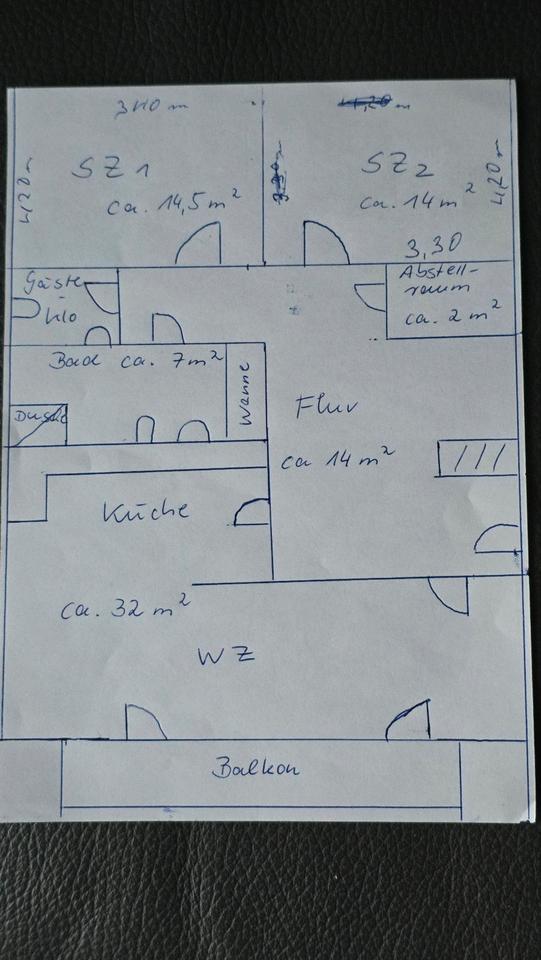 3,40 m
4,20 m
SZ 1
ca. 14,5 m²
m
SZ 2
4,20 m
ca. 14 m²
3,30
Gäste
klo
Abstell-
raum
ca. 2 m²
Bad ca. 7 m²
Wanne
Dusche
Flur
ca 14 m²
Küche
ca. 32 m²
WZ
Balkon